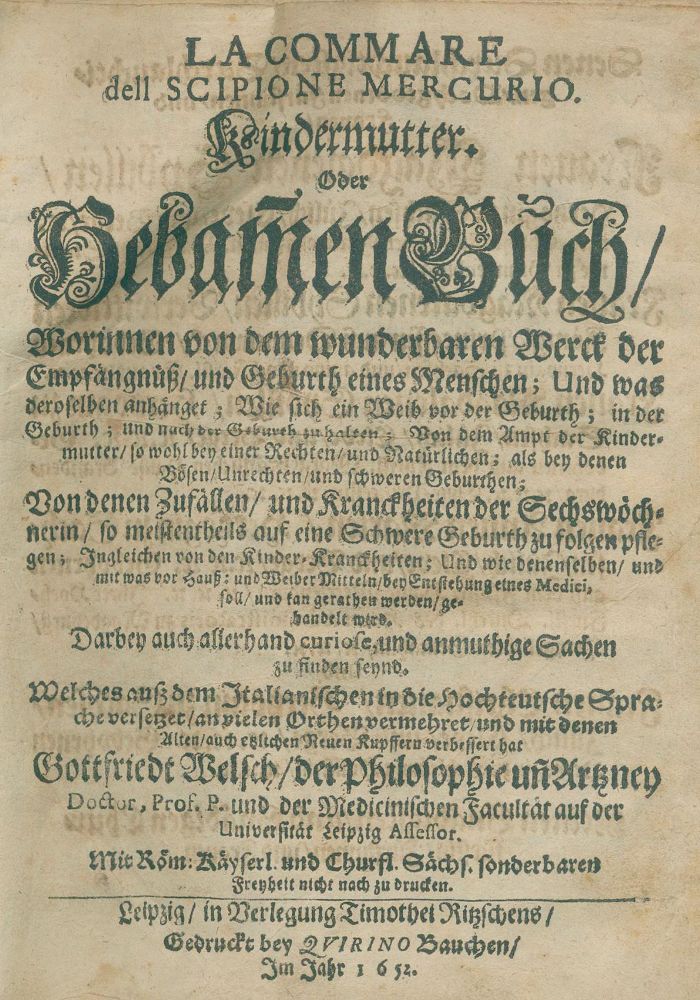 LA COMMARE
dell SCIPIONE MERCURIO.
Kindermutter.
Oder
Hebam̃en Bũch/
Worinnen von dem wunderbaren Werck der
Empfängnüß/ und Geburth eines Menschen; Und was
deroselben anhänget; Wie sich ein Weib vor der Geburth; in der
Geburth; und nach der Geburth zu halten; Von dem Ampt der Kinder-
mutter/ so wohl bey einer Rechten/ und Natürlichen; als bey denen
Bösen/ Unrechten/ und schweren Geburthen;
Von denen Zufällen/ und Kranckheiten der Sechswöch-
nerin/ so meistentheils auf eine Schwere Geburth zu folgen pfle-
gen; Ingleichen von den Kinder-Kranckheiten; Und wie denenselben/ und
mit was vor Hauß: und Weiber Mitteln/ bey Entstehung eines Medici,
soll/ und kan gerathen werden/ ge-
handelt wird.
Darbey auch allerhand curiose, und anmuthige Sachen
zu finden seynd.
Welches auß dem Italianischen in die Hochteutsche Spra-
che versetzet/ an vielen Orthen vermehret/ und mit denen
Alten/ auch etzlichen Neuen Kupffern verbessert hat
Gottfriedt Welsch/ der Philosophie uñ Artzney
Doctor, Prof. P. und der Medicinischen Facultät auf der
Universität Leipzig Assessor.
Mit Röm: Käyserl. und Churfl. Sächs. sonderbaren
Freyheit nicht nach zu drucken.
Leipzig/ in Verlegung Timothei Ritzschens/
Gedruckt bey QVIRINO Bauchen/
Im Jahr 1652.